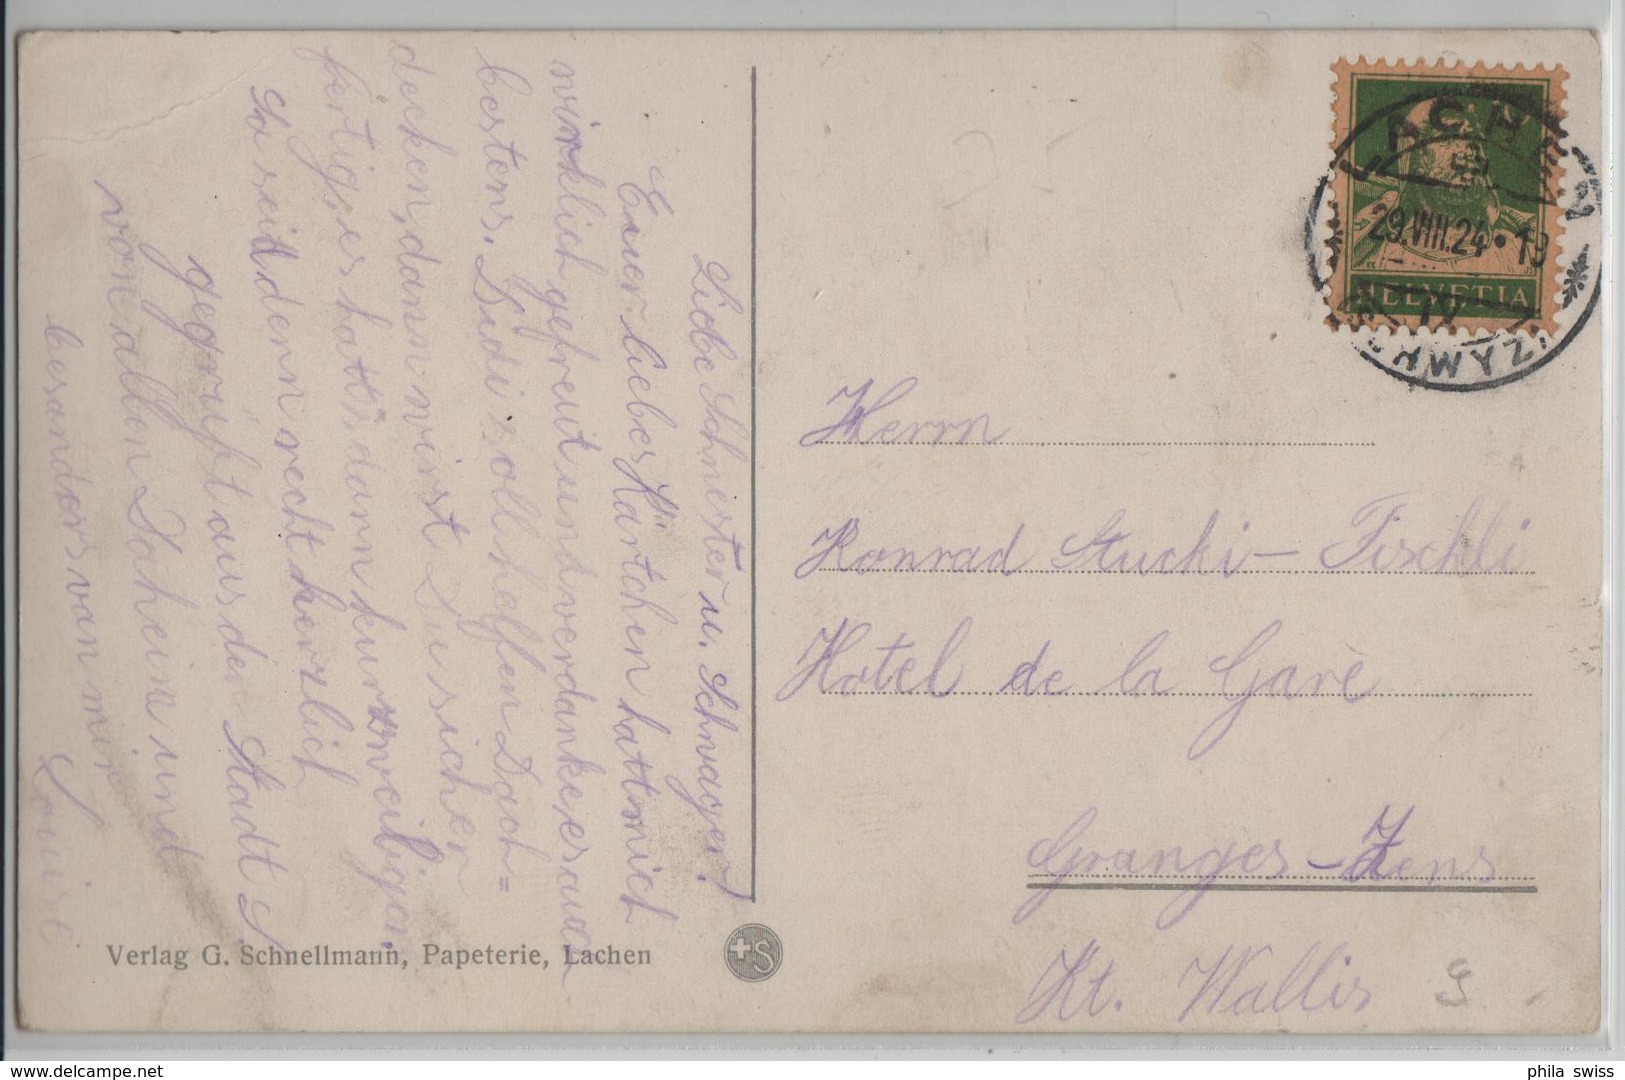 Liebe Schwester u. Schwager!
Euer liebes Kärtchen hatt mich
wirklich gefreut und verdanke es auch
bestens. Dudi soll helfen Dach=
decken, dann wirst Du sicher
fertig, es hatts darn kurzweiliger.
So seid denn recht herzlich
gegrüsst aus der Stadt S
von allen Daheim und
besonders von mir
Louise
Verlag G. Schnellmann, Papeterie, Lachen
+S
LACHEN
29.VIII.24·19
HELVETIA
(SCHWYZ)
Herrn
Konrad Stucki-Fischli
Hotel de la Gare
Granges-Lens
Kt. Wallis
phila swiss
www.delcampe.net